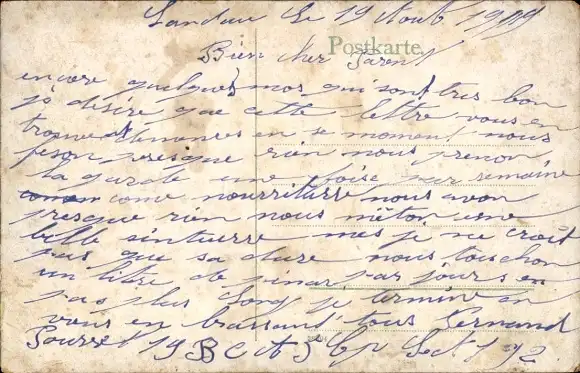 Landau Le 19 Aout 1919
Postkarte
Bien cher Parent
encore quelques mos qui sont tres bon
jé désire que cette lettre vous en
trouve de en se moment nous
feson presque rien nous prenon
la garde une foise par semaine
come nourriturre nous avon
presque rien nous mêton une
belle sinturre mes je ne croit
pas que sa dure nous touchon
un litre de pinar par jours en
pas plus Long je termine en
vous en brassant tous Fernand
Pourret 19 B C A 5 Cp Sect 192